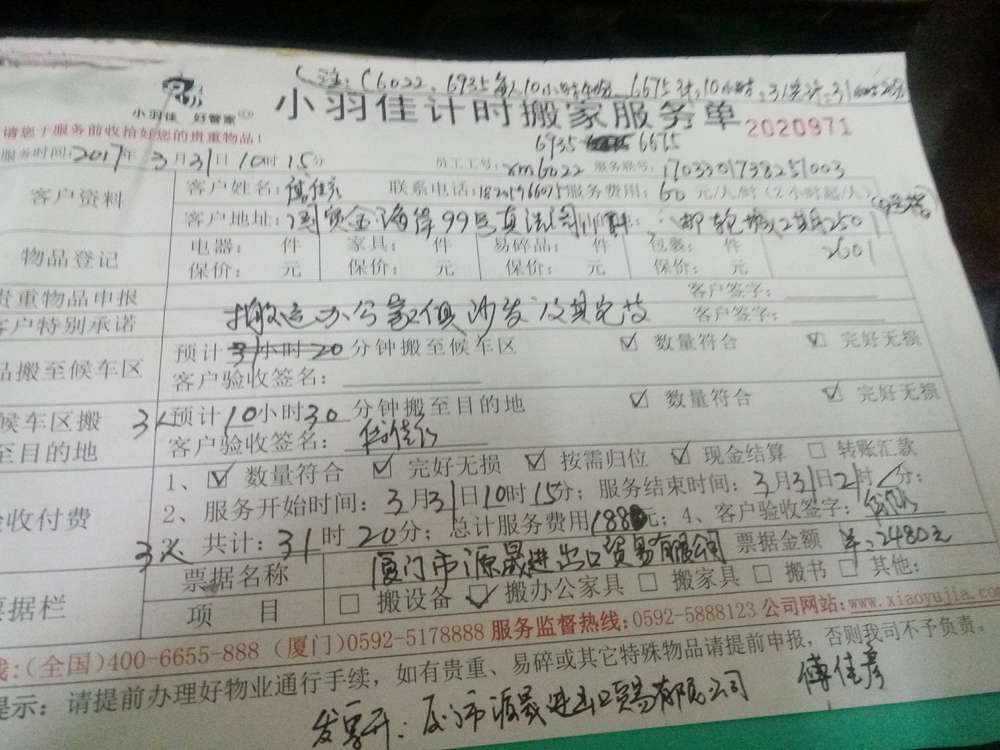 注:(6022、6935每人10小时 6675 10小时 31共计:31时20分
小羽佳 好管家
小羽佳计时搬家服务单 2020971
请您于服务前收拾好您的贵重物品!
6935 6675
服务时间:2017年3月31日10时15分 员工工号:xm6022 服务联号:170330173825l003
客户资料 客户姓名: 联系电话:18205966075 服务费用:60元/人/时(2小时起/人)
客户地址: 99号 2501
2601
物品登记 电器: 件 家具: 件 易碎品: 件 包裹: 件
保价: 元 保价: 元 保价: 元 保价: 元
贵重物品申报 客户签字:
客户特别承诺 搬运办公家俱沙发及其它 客户签字:
品搬至候车区 预计 小时20分钟搬至候车区 ☑ 数量符合 ☑ 完好无损
客户验收签名:
候车区搬至目的地 3人 预计10小时30分钟搬至目的地 ☑ 数量符合 ☑ 完好无损
客户验收签名:
验收付费 1、☑ 数量符合 ☑ 完好无损 ☑ 按需归位 ☑ 现金结算 □ 转账汇款
2、服务开始时间:3月31日10时15分;服务结束时间:3月31日21时 分;
3人 共计:31时20分;总计服务费用1880元;4、客户验收签字:
票据栏 票据名称 厦门市源晟进出口贸易有限公司 票据金额 ¥:2480元
项 目 □ 搬设备 ☑ 搬办公家具 □ 搬家具 □ 搬书 □ 其他:
线:(全国)400-6655-888(厦门)0592-5178888 服务监督热线:0592-5888123 公司网站:www.xiaoyujia.com
提示:请提前办理好物业通行手续,如有贵重、易碎或其它特殊物品请提前申报,否则我司不予负责。
发票开:厦门市源晟进出口贸易有限公司 傅佳彦